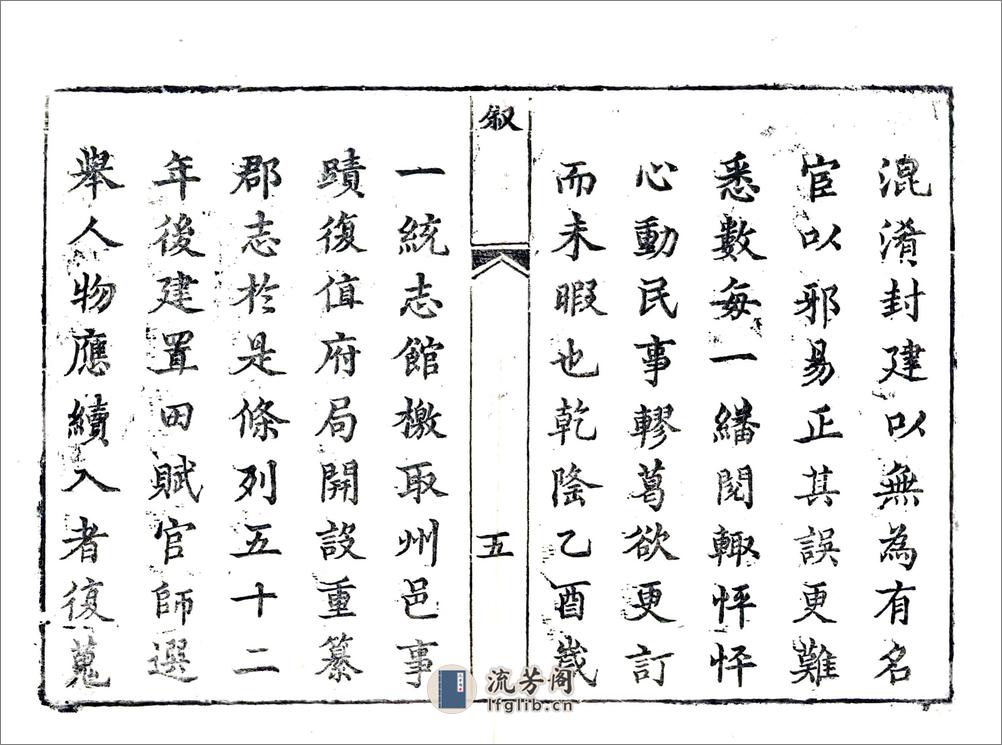 混淆封建以無為有名
宦以邪易正其誤更難
悉數每一繙閱輙怦怦
心動民事轇葛欲更訂
而未暇也乾隆乙酉歲
叙
五
一統志館檄取州邑事
蹟復值府局開設重纂
郡志於是條列五十二
年後建置田賦官師選
舉人物應續入者復蒐
流芳阁
lfglib.cn